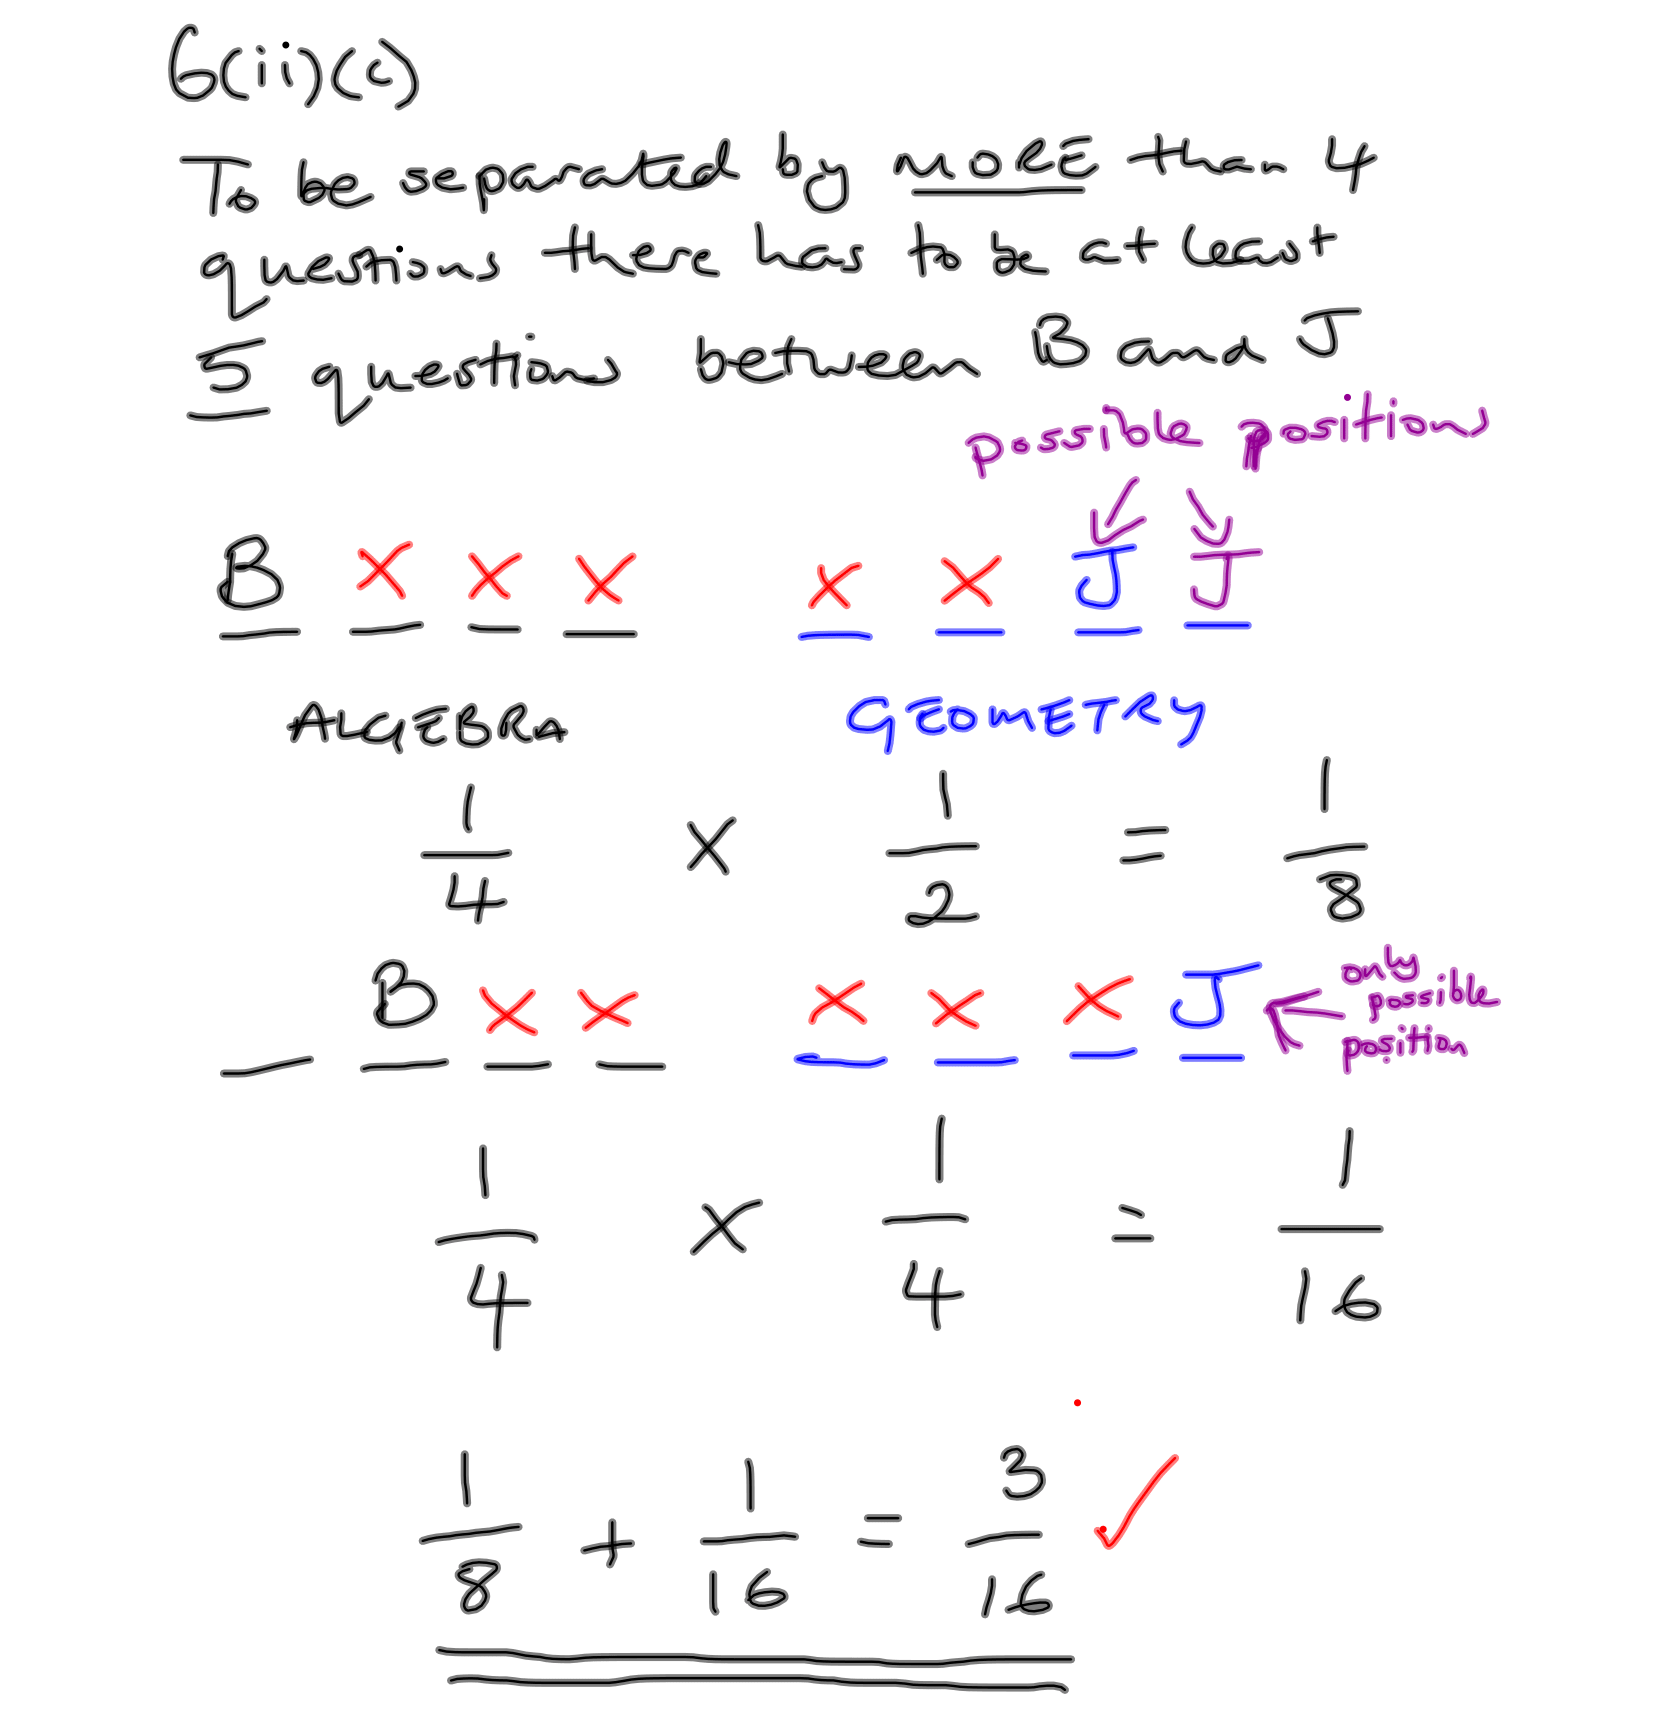 6(ii)(c)
To be separated by MORE than 4
questions there has to be at least
5 questions between B and J
possible positions
B X X X X X J J
ALGEBRA GEOMETRY
1/4 × 1/2 = 1/8
B X X X X X J
only
possible
position
1/4 × 1/4 = 1/16
1/8 + 1/16 = 3/16 ✓